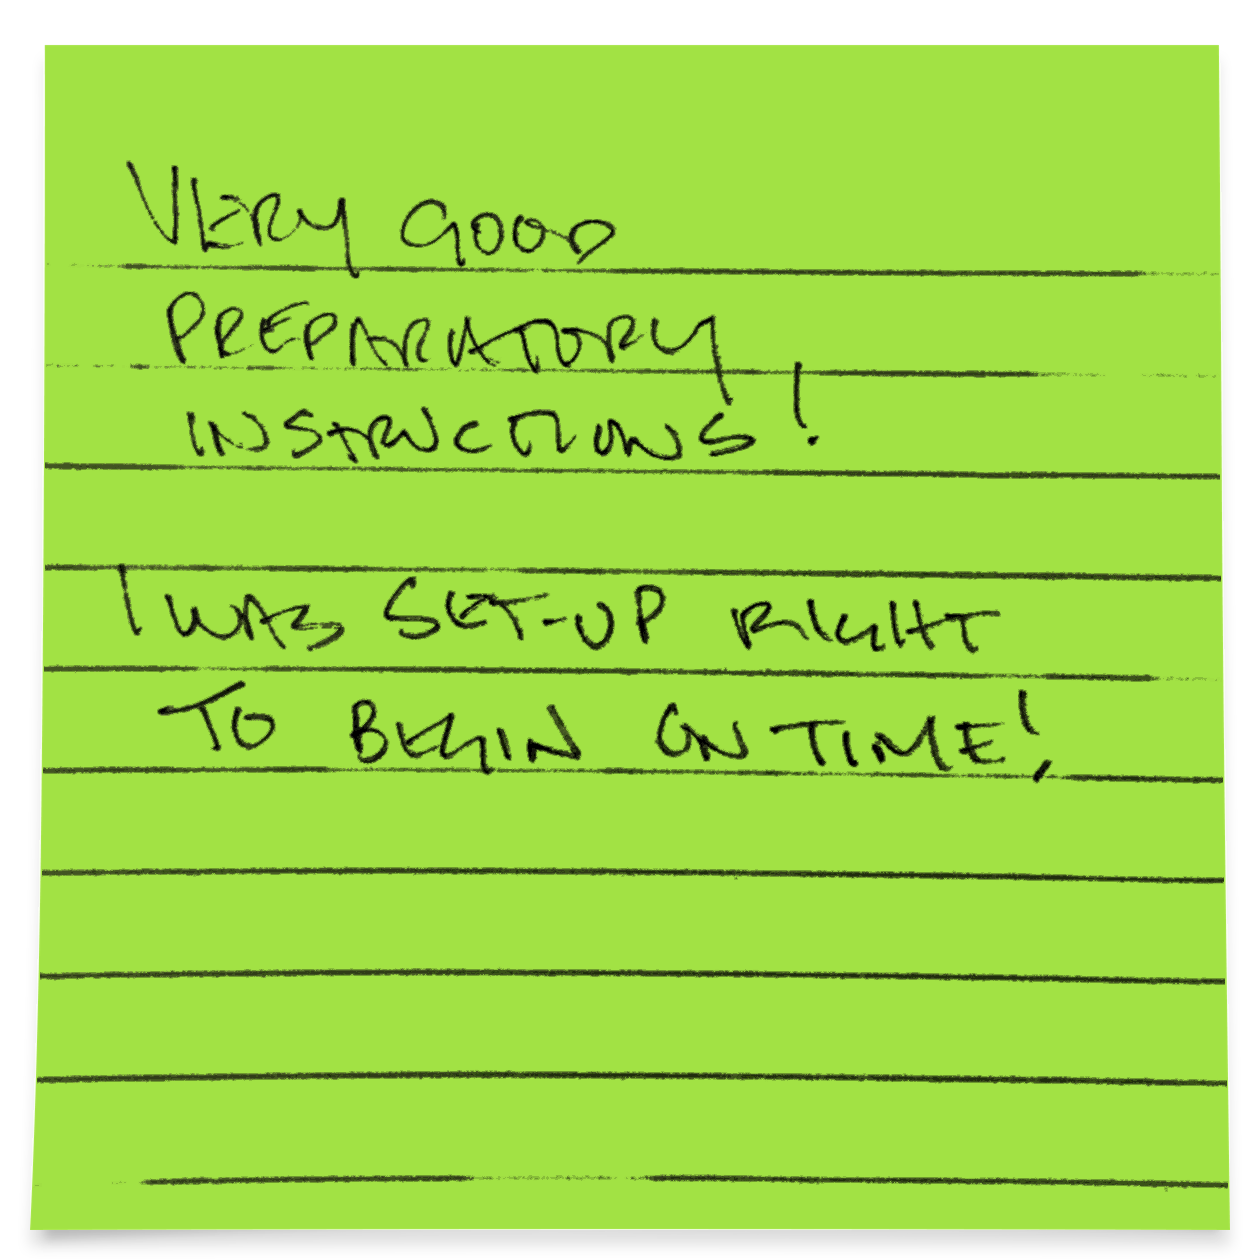 VERY GOOD
PREPARATORY
INSTRUCTIONS!
I WAS SET-UP RIGHT
TO BEGIN ON TIME!